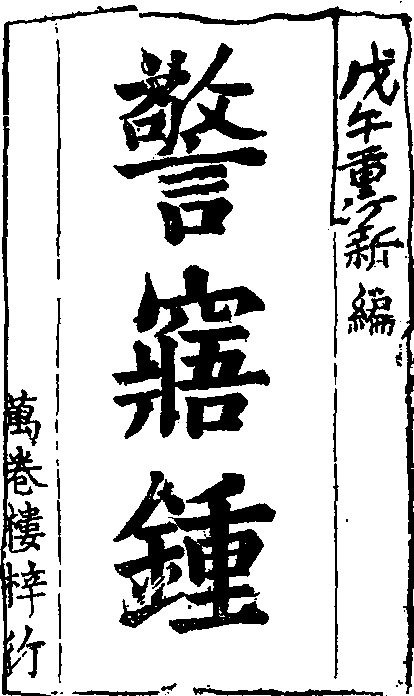 戊午重訂新編
警寤鍾
萬卷樓梓行